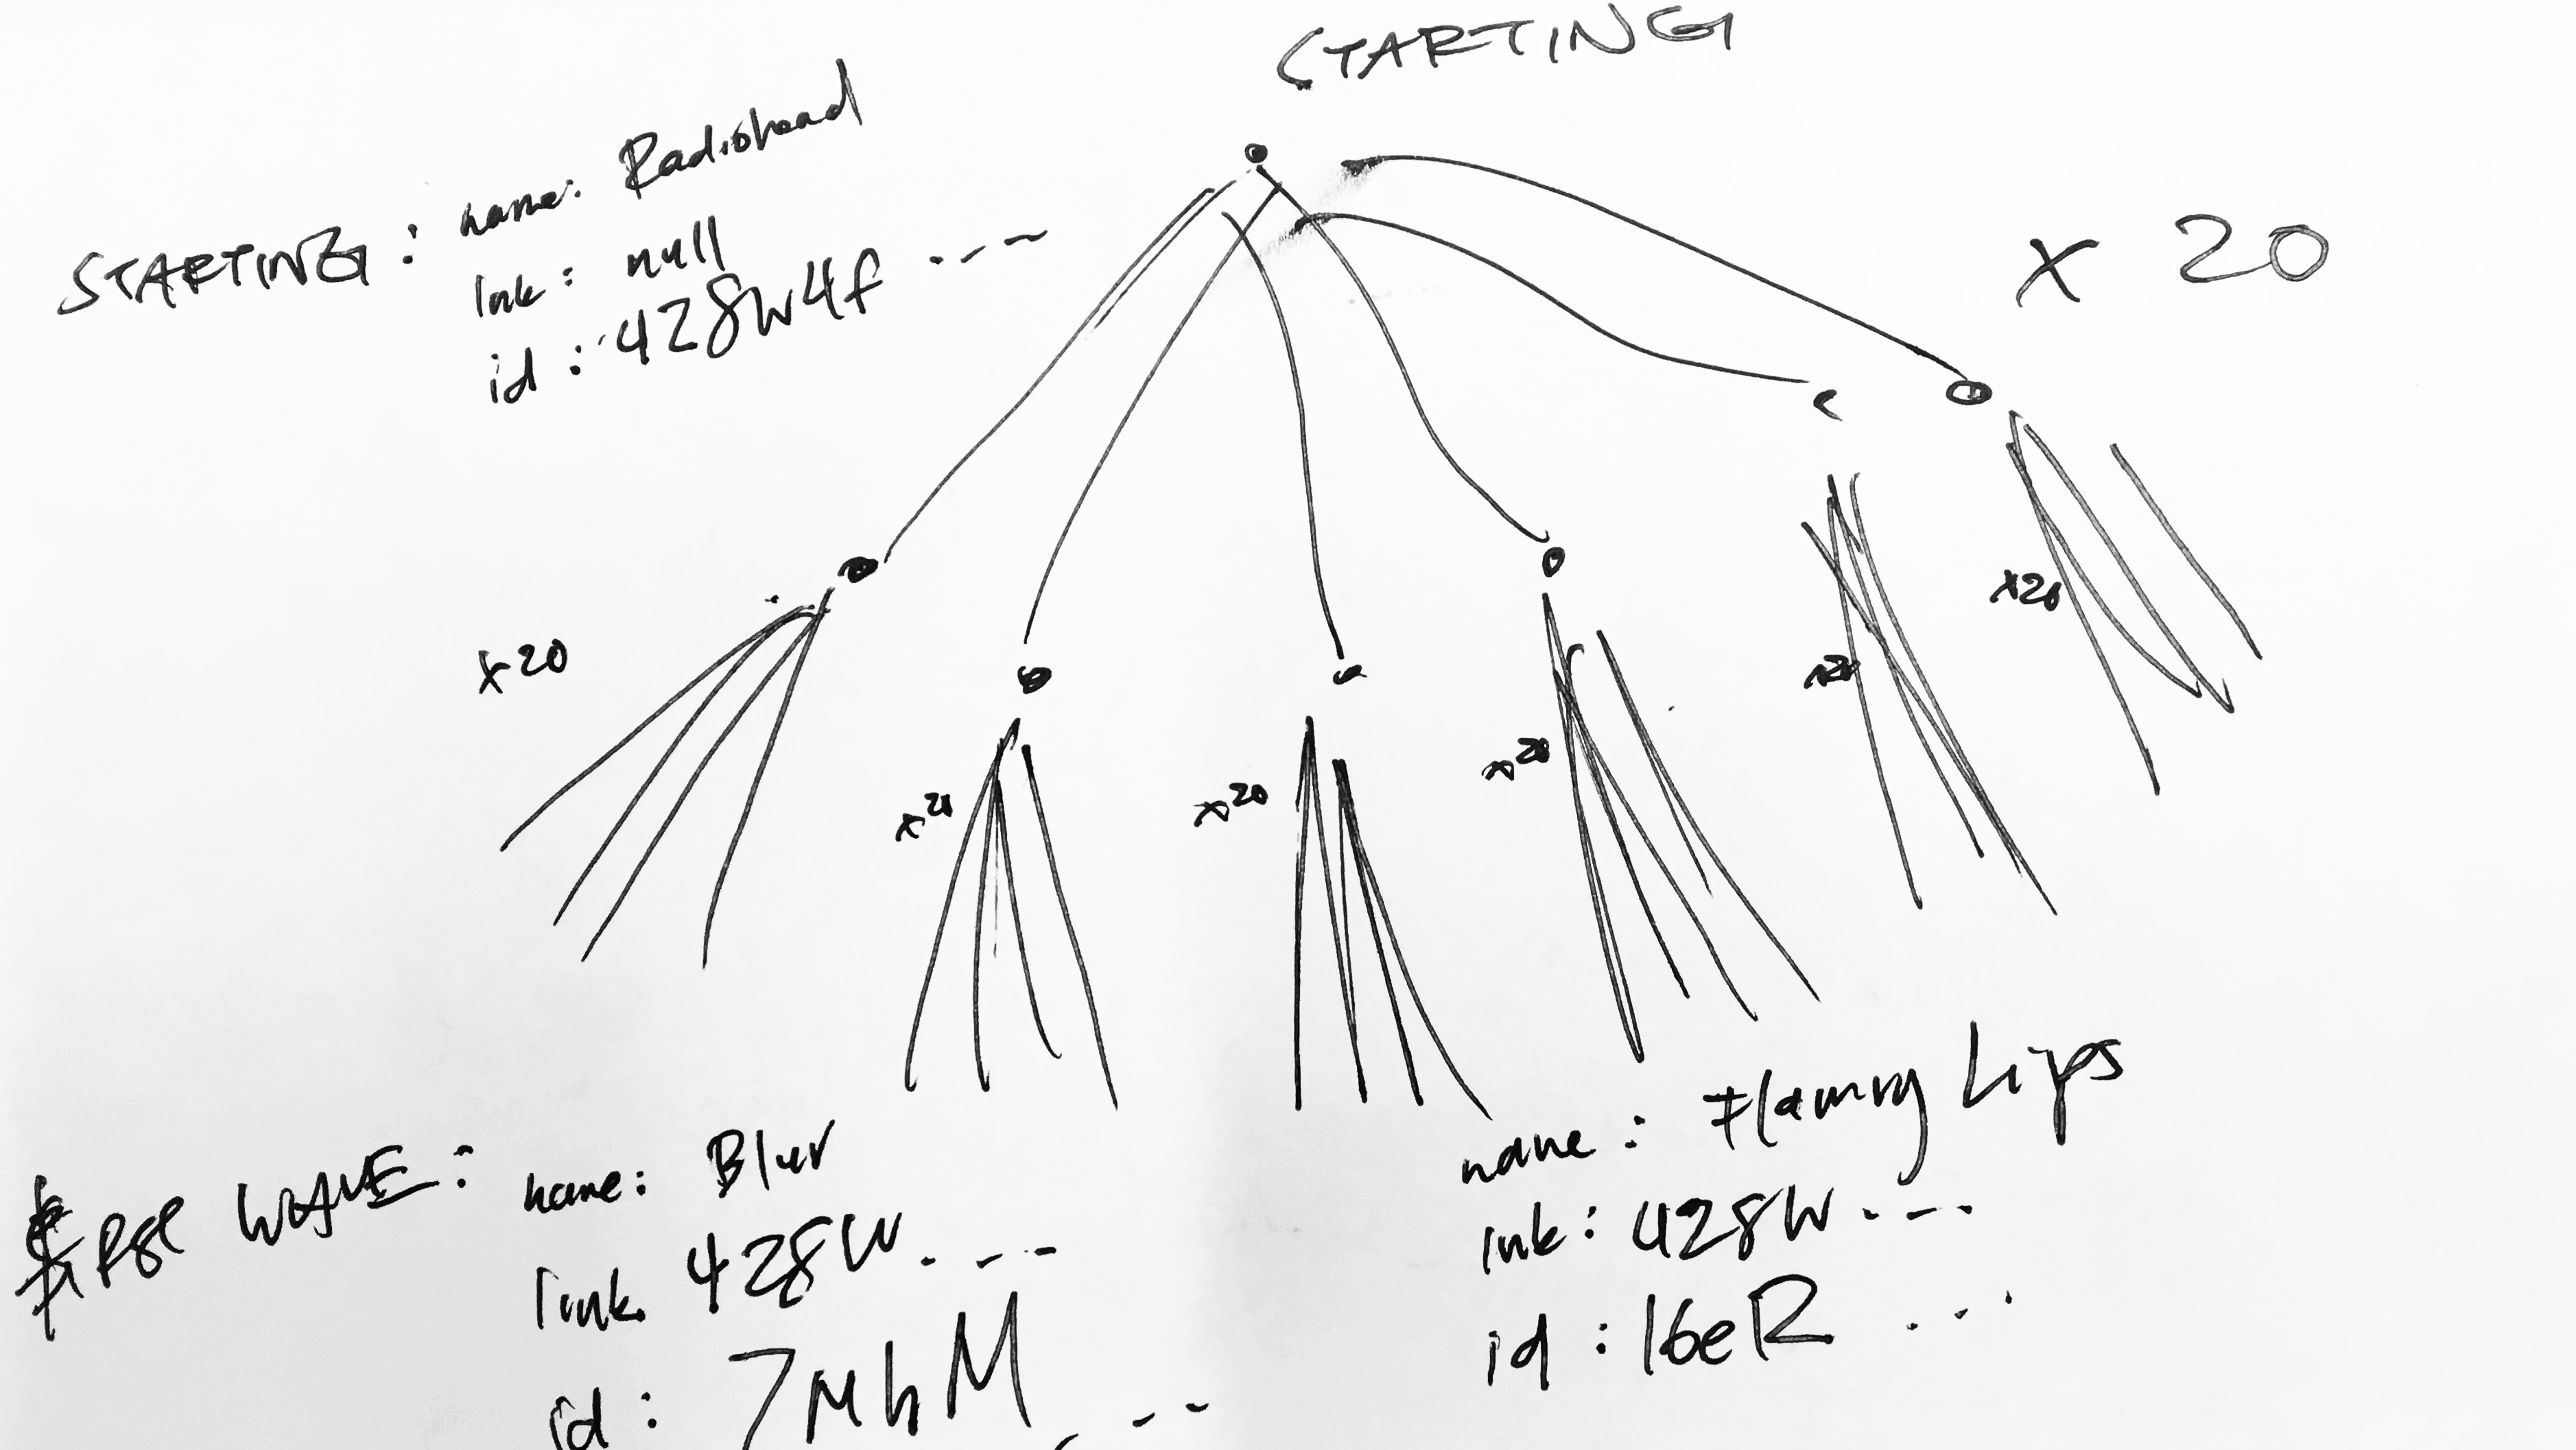 STARTING
STARTING : name: Radiohead
link : null
id : 428W4f ---
x 20
x20
x20
x20
x20
x20
x20
FIRST WAVE : name: Blur
link. 428W. ---
id : 7MhM ---
name : Flaming Lips
link : 428W. ---
id : 16eR ...